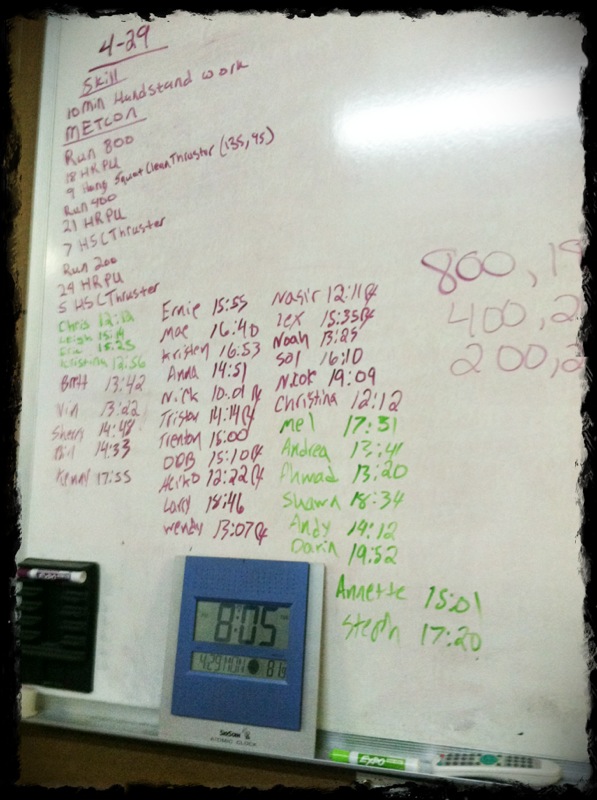 4-29
Skill
10 min Handstand work
METCON
Run 800
18 HRPU
9 Hang Squat Clean Thruster (135, 95)
Run 400
21 HRPU
7 HSC Thruster
Run 200
24 HRPU
5 HSC Thruster
Chris
Leigh
Eric 15:25
Kristina 12:56
Britt 13:42
Vin 13:22
Sherry 14:48
14:33
Kenny 17:55
Ernie 15:55
Mae 16:40
Kristen 16:53
Anna 14:51
Nick 10:01 ℞
Tristan 14:14 ℞
Trenton 15:00
ODB 15:10 ℞
12:22 ℞
Larry 18:46
Wendy 13:07 ℞
Nasir 12:11 ℞
Lex 15:35 ℞
Noah 13:25
Sal 16:10
19:09
Christina 12:12
Mel 17:31
Andrea 13:41
Ahmad 13:20
Shawn 18:34
Andy 14:12
Darin 19:52
Annette 15:01
Steph 17:20
800, 1
400, 2
200, 2
8:05
4/29 MON
ATOMIC CLOCK
EXPO